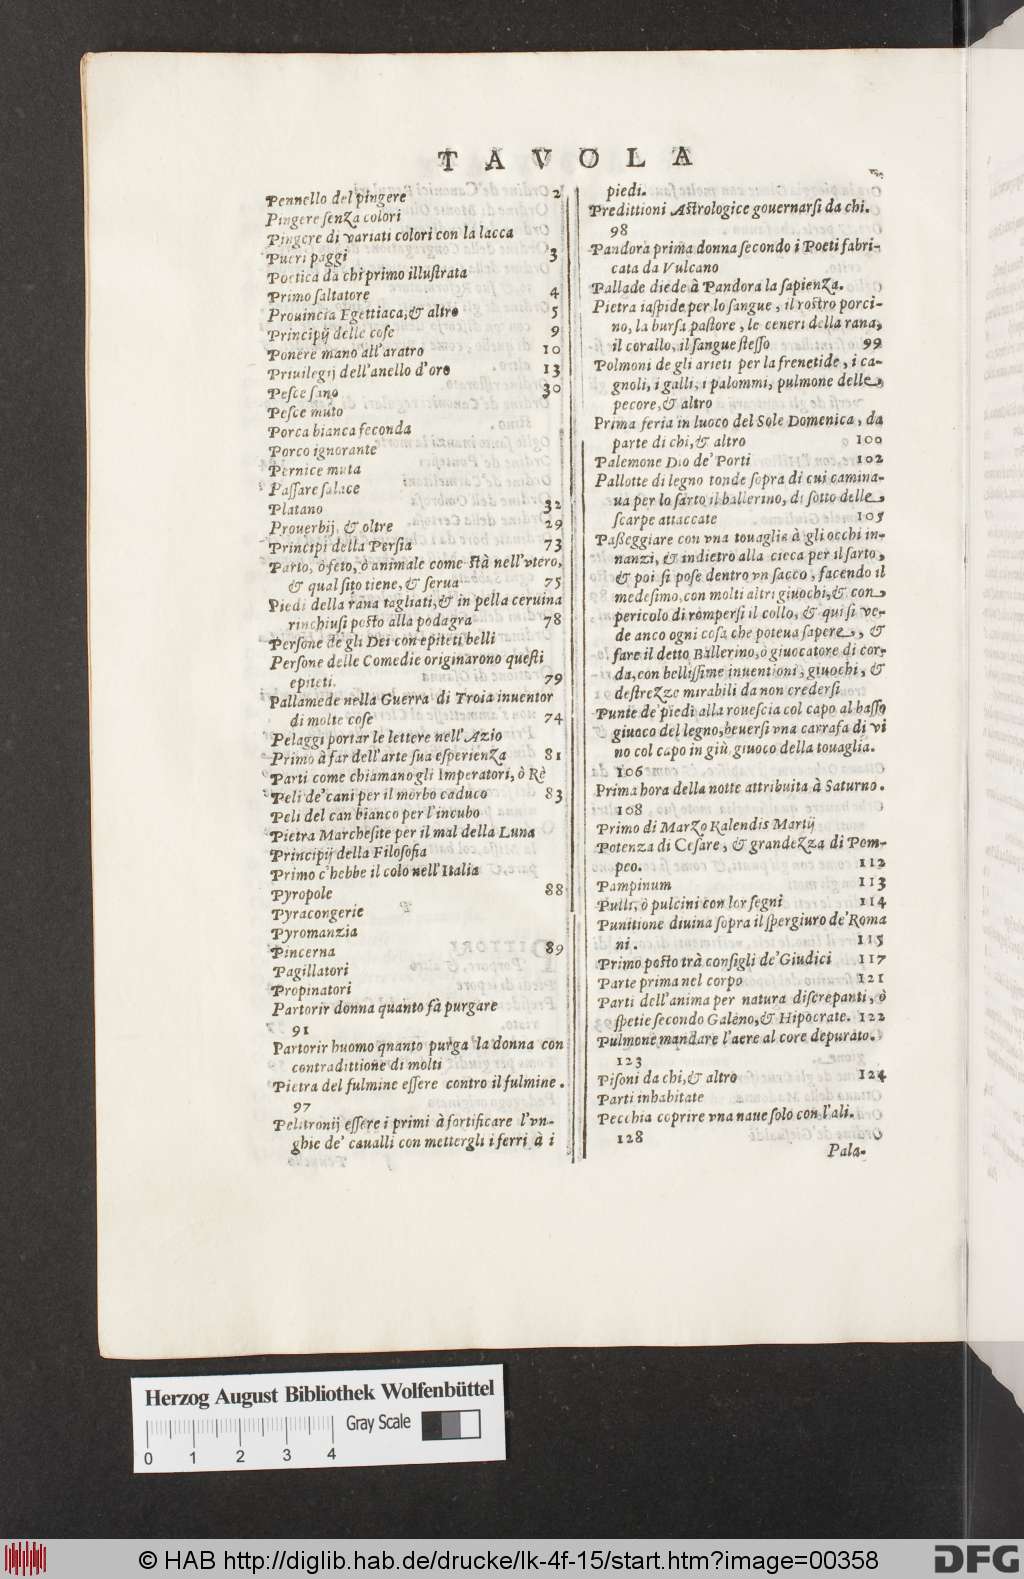 TAVOLA
Pennello del pingere 2
Pingere ſenza colori
Pingere di variati colori con la lacca
Pueri paggi 3
Poetica da chi primo illuſtrata
Primo ſaltatore 4
Prouincia Egettiaca, & altro 5
Principij delle coſe 9
Ponere mano all'aratro 10
Priuilegij dell'anello d'oro 13
Peſce ſano 30
Peſce muto
Porca bianca feconda
Porco ignorante
Pernice muta
Paſſare ſalace
Platano 32
Prouerbij, & oltre 29
Principi della Perſia 73
Parto, ò feto, ò animale come ſtà nell'vtero,
& qual ſito tiene, & ſerua 75
Piedi della rana tagliati, & in pella ceruina
rinchiuſi poſto alla podagra 78
Perſone de gli Dei con epiteti belli
Perſone delle Comedie originarono queſti
epiteti. 79
Pallamede nella Guerra di Troia inuentor
di molte coſe 74
Pelaggi portar le lettere nell'Azio
Primo à far dell'arte ſua eſperienza 81
Parti come chiamano gli Imperatori, ò Rè
Peli de'cani per il morbo caduco 83
Peli del can bianco per l'incubo
Pietra Marcheſite per il mal della Luna
Principij della Filoſofia
Primo c'hebbe il colo nell'Italia
Pyropole 88
Pyracongerie
Pyromanzia
Pincerna 89
Pagillatori
Propinatori
Partorir donna quanto fà purgare
91
Partorir huomo qnanto purga la donna con
contradittione di molti
Pietra del fulmine eſſere contro il fulmine.
97
Pelitronij eſſere i primi à fortificare l'vn-
ghie de' caualli con mettergli i ferri à i
piedi.
Predittioni Aſtrologice gouernarſi da chi.
98
Pandora prima donna ſecondo i Poeti fabri-
cata da Vulcano
Pallade diede à Pandora la ſapienza.
Pietra iaſpide per lo ſangue, il roſtro porci-
no, la burſa paſtore, le ceneri della rana,
il corallo, il ſangue ſteſſo 99
Polmoni de gli arieti per la frenetide, i ca-
gnoli, i galli, i palommi, pulmone delle
pecore, & altro
Prima feria in luoco del Sole Domenica, da
parte di chi, & altro 100
Palemone Dio de' Porti 102
Pallotte di legno tonde ſopra di cui camina-
ua per lo ſarto il ballerino, di ſotto delle
ſcarpe attaccate 105
Paſſeggiare con vna touaglia à gli occhi in-
nanzi, & indietro alla cieca per il ſarto,
& poi ſi poſe dentro vn ſacco, facendo il
medeſimo, con molti altri giuochi, & con
pericolo di romperſi il collo, & qui ſi ve-
de anco ogni coſa che poteua ſapere, &
fare il detto Ballerino, ò giuocatore di cor-
da, con belliſſime inuentioni, giuochi, &
deſtrezze mirabili da non crederſi
Punte de' piedi alla roueſcia col capo al baſſo
giuoco del legno, beuerſi vna carrafa di vi
no col capo in giù, giuoco della touaglia.
106
Prima hora della notte attribuita à Saturno.
108
Primo di Marzo Kalendis Martij
Potenza di Ceſare, & grandezza di Pom-
peo. 112
Pampinum 113
Pulli, ò pulcini con lor ſegni 114
Punitione diuina ſopra il ſpergiuro de' Roma
ni. 115
Primo poſto trà conſigli de' Giudici 117
Parte prima nel corpo 121
Parti dell'anima per natura diſcrepanti, ò
ſpetie ſecondo Galeno, & Hipocrate. 122
Pulmone mandare l'aere al core depurato.
123
Piſoni da chi, & altro 124
Parti inhabitate
Pecchia coprire vna naue ſolo con l'ali.
128
Pala-
Herzog August Bibliothek Wolfenbüttel
Gray Scale
0 1 2 3 4
© HAB http://diglib.hab.de/drucke/lk-4f-15/start.htm?image=00358
DFG